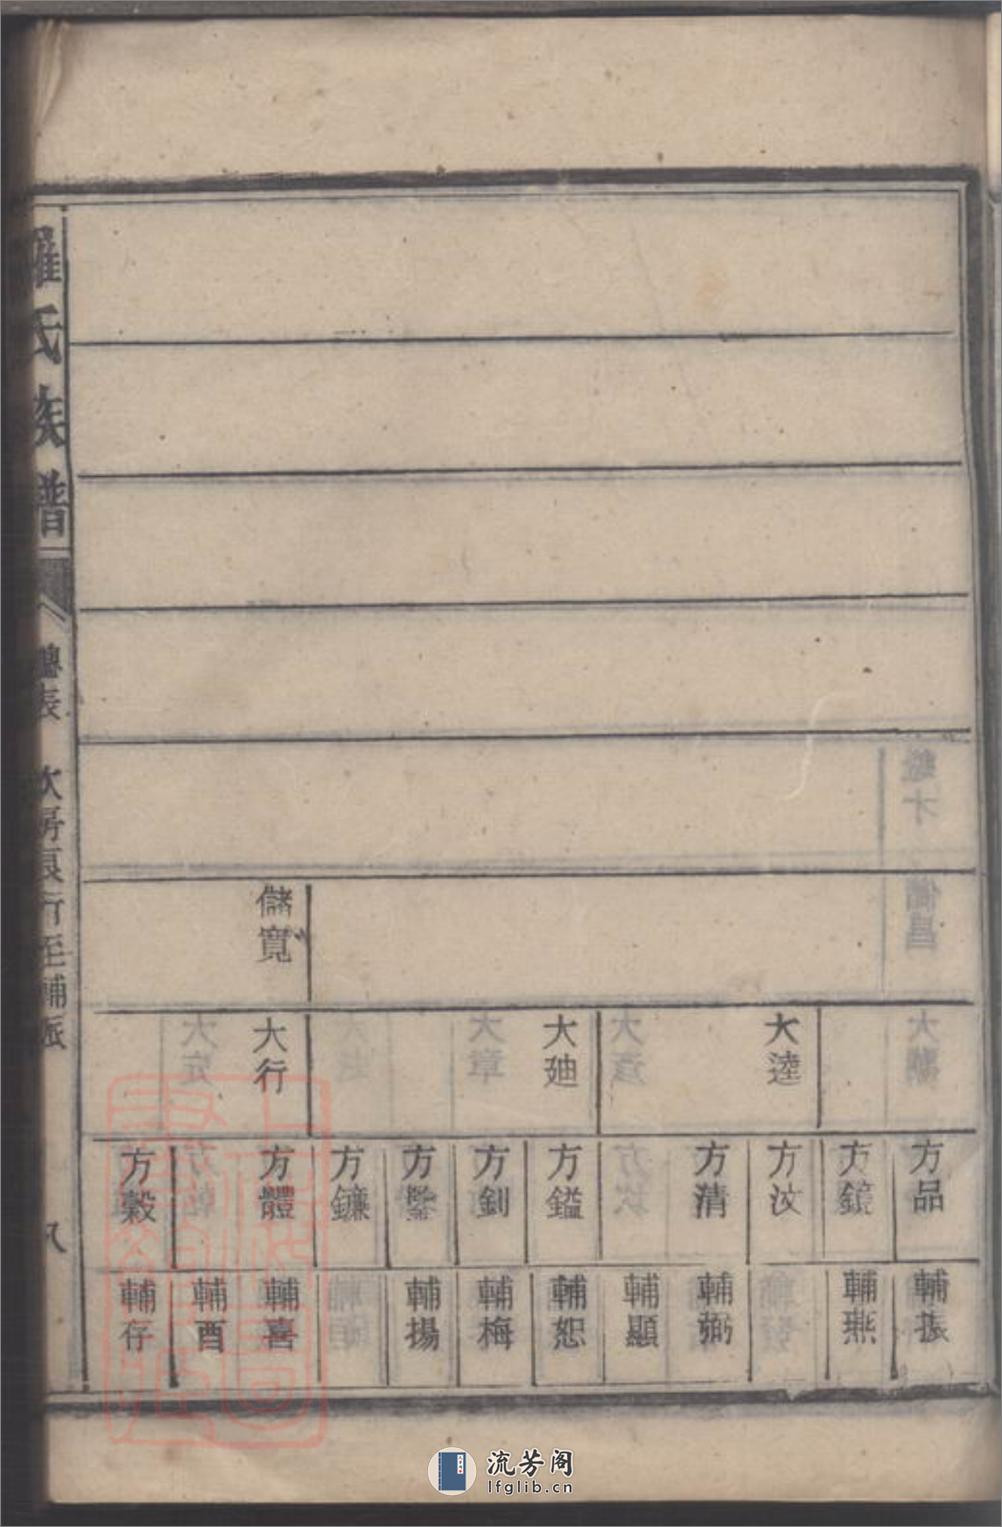 羅氏族譜
表
次房良行至輔派
八
儲寬
大逵
大廸
大行
方品
方鏡
方汶
方清
方鎰
方釗
方鑒
方鐮
方體
方穀
輔振
輔燕
輔弼
輔顯
輔恕
輔梅
輔揚
輔喜
輔酉
輔仔
流芳阁
lfglib.cn